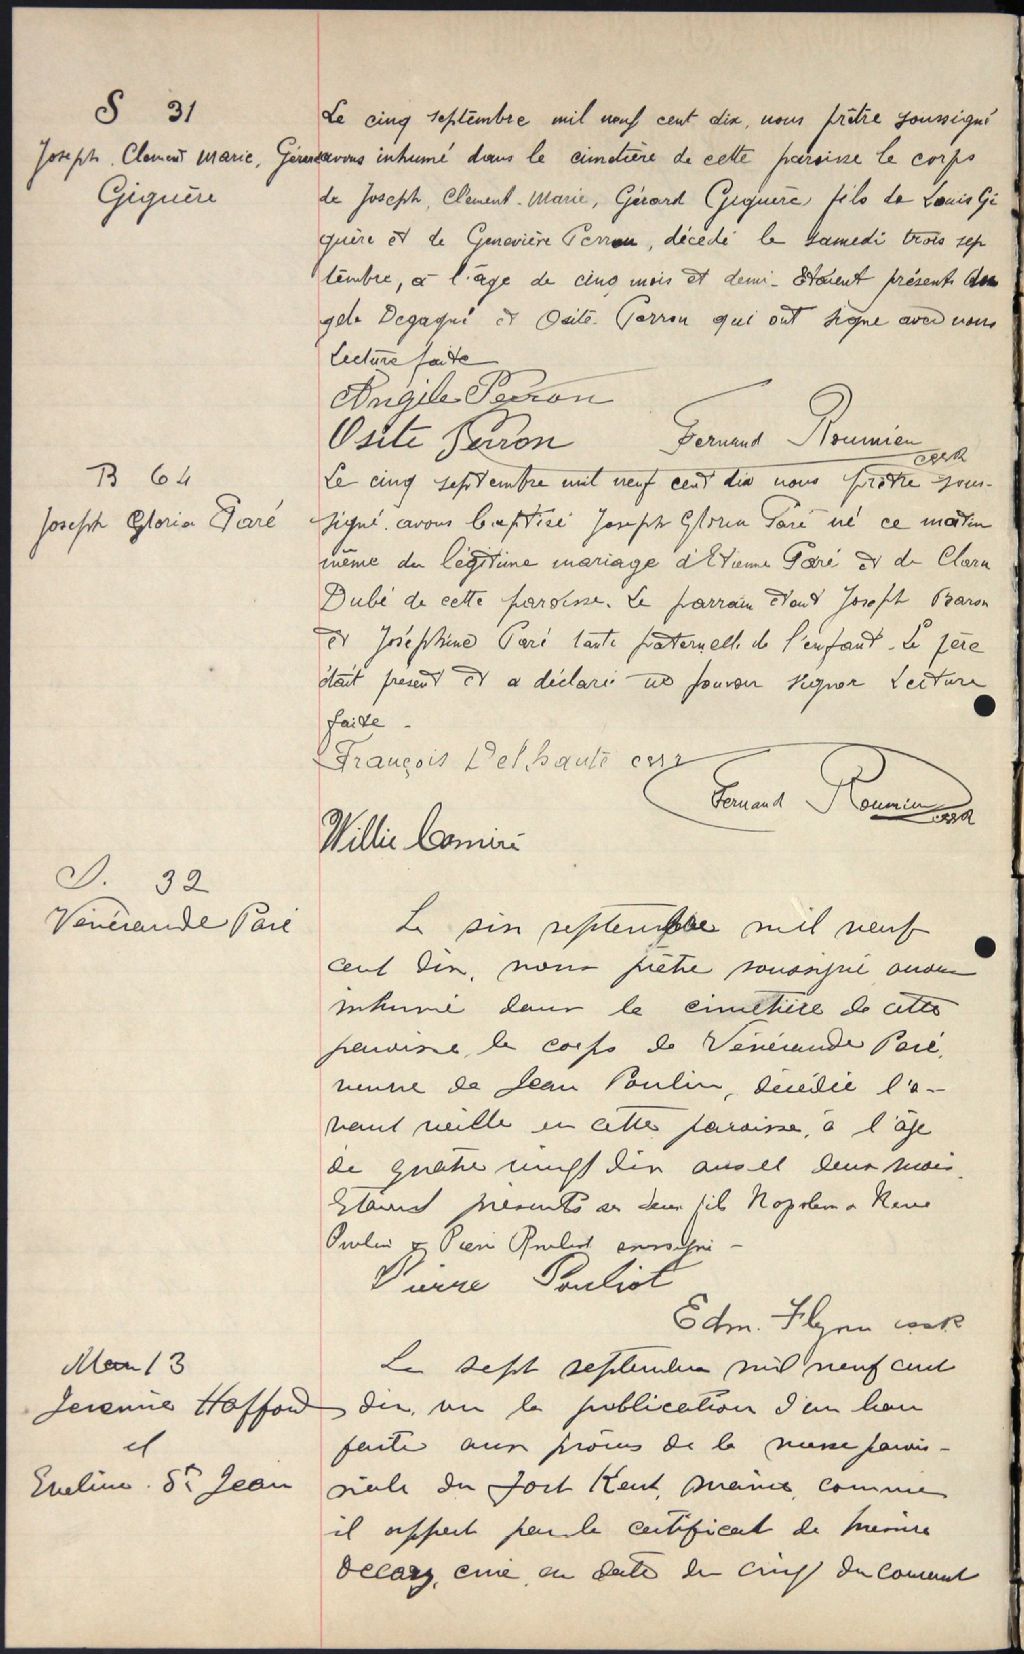 S 31
Joseph, Clement Marie, Gérard
Giguère
Le cinq septembre mil neuf cent dix, nous prêtre soussigné
avons inhumé dans le cimetière de cette paroisse le corps
de Joseph, Clement-Marie, Gérard Giguère, fils de Louis Gi
guère et de Geneviève Perron, décédé le samedi trois sep
tembre, à l'âge de cinq mois et demi. Etaient présents An
gele Degagné et Osite Perron qui ont signé avec nous
Lecture faite
Angèle Perron
Osite Perron Fernand Roumieu
CSSR
B 64
Joseph Gloria Paré
Le cinq septembre mil neuf cent dix nous prêtre sous-
signé avons baptisé Joseph Gloria Paré né ce matin
même du légitime mariage d'Etienne Paré et de Clara
Dubé de cette paroisse. Le parrain étant Joseph Baron
et Joséphine Paré tante paternelle de l'enfant. Le père
était présent et a déclaré ne pouvoir signer Lecture
faite -
François Delhauté cssr
Fernand Roumieu
CSSR
Willie Comiré
S. 32
Vénérande Paré
Le six septembre mil neuf
cent dix, nous prêtre soussigné avons
inhumé dans le cimetière de cette
paroisse, le corps de Vénérande Paré,
veuve de Jean Poulin, décédée l'a-
vant veille en cette paroisse, à l'âge
de quatre vingt dix ans et deux mois.
Etaient présents ses deux fils Napoleon &
Poulin & Pierre Pouliot soussigné -
Pierre Pouliot
Edm. Flynn cssr
Mar 13
Jeremie Hafford
et
Eveline St Jean
Le sept septembre mil neuf cent
dix, vu la publication d'un ban
faite aux prônes de la messe parois-
siale du Fort Kent, Maine, comme
il appert par le certificat de Messire
Decary, curé, en date du cinq du courant